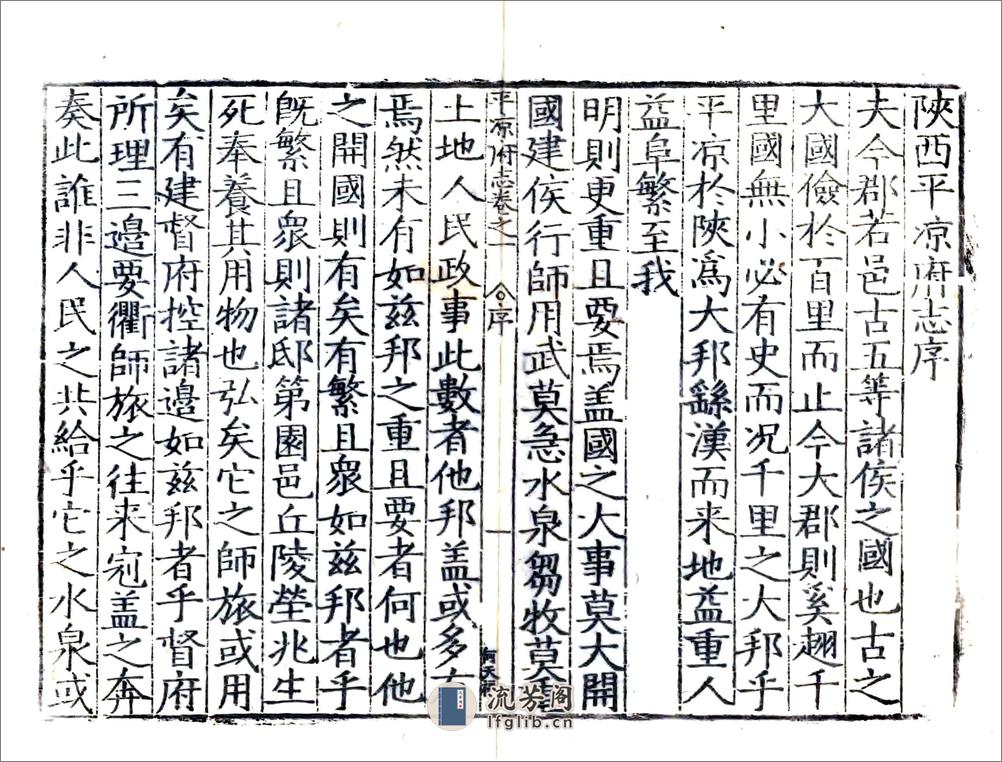 陝西平凉府志序
夫今郡若邑古五等諸侯之國也古之
大國儉於百里而止今大郡則奚趐千
里國無小必有史而况千里之大邦乎
平凉於陝爲大邦繇漢而来地益重人
益阜繁至我
明則更重且要焉盖國之大事莫大開
國建侯行師用武莫急水泉芻牧莫重
平凉府志卷之一 序 一 何天
土地人民政事此數者他邦盖或多有
焉然未有如兹邦之重且要者何也他
之開國則有矣有繁且衆如兹邦者乎
旣繁且衆則諸邸第園邑丘陵塋兆生
死奉養其用物也弘矣它之師旅或用
矣有建督府控諸邉如兹邦者乎督府
所理三邉要衢師旅之往来冠盖之奔
奏此誰非人民之共給乎它之水泉或
流芳阁
lfglib.cn